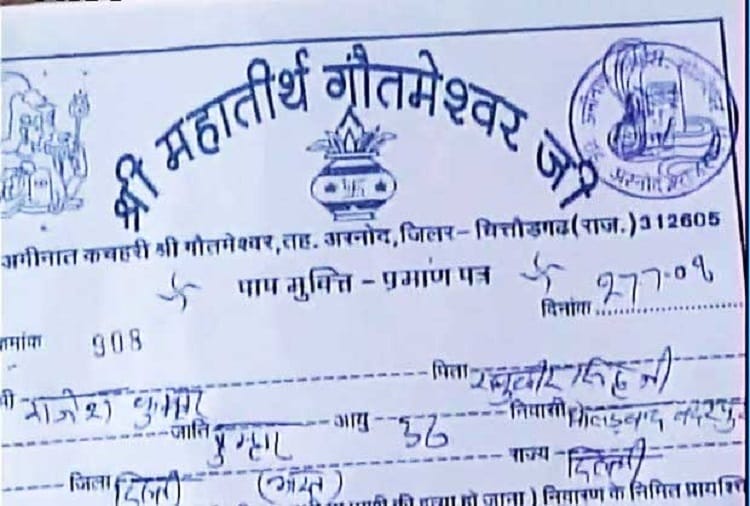 श्री महातीर्थ गौतमेश्वर जी
अमीनात कचहरी श्री गौतमेश्वर, तह. अरनोद, जिलर- चित्तौड़गढ़ (राज.) 312605
पाप मुक्ति - प्रमाण पत्र
दिनांक
क्रमांक 908
राजेश कुमार पिता रघुवीर सिंह जी
जाति कुम्हार आयु 36 निवासी
जिला दिल्ली (भारत) राज्य दिल्ली
की हत्या हो जाना ) निवारण के निमित प्रायश्चि